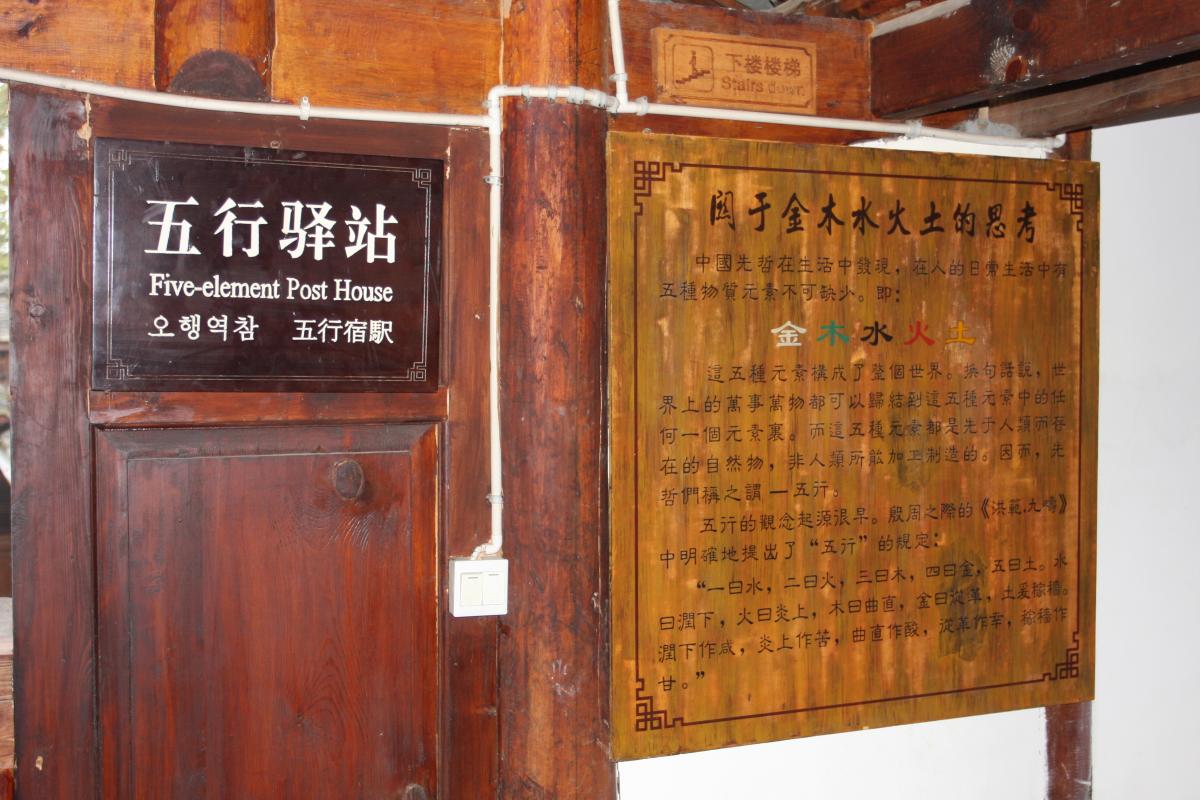 下楼楼梯
Stairs down
五行驿站
Five-element Post House
오행역참 五行宿駅
関于金木水火土的思考
中國先哲在生活中發現，在人的日常生活中有
五種物質元素不可缺少。即：
金木水火土
這五種元素構成了整個世界。換句話說，世
界上的萬事萬物都可以歸結到這五種元素中的任
何一個元素裏。而這五種元素都是先于人類而存
在的自然物，非人類所能加工制造的。因而，先
哲們稱之謂—五行。
五行的觀念起源很早。殷周之際的《洪範.九疇》
中明確地提出了“五行”的規定：
“一曰水，二曰火，三曰木，四曰金，五曰土。水
曰潤下，火曰炎上，木曰曲直，金曰從革，土爰稼穡。
潤下作咸，炎上作苦，曲直作酸，從革作辛，稼穡作
甘。”